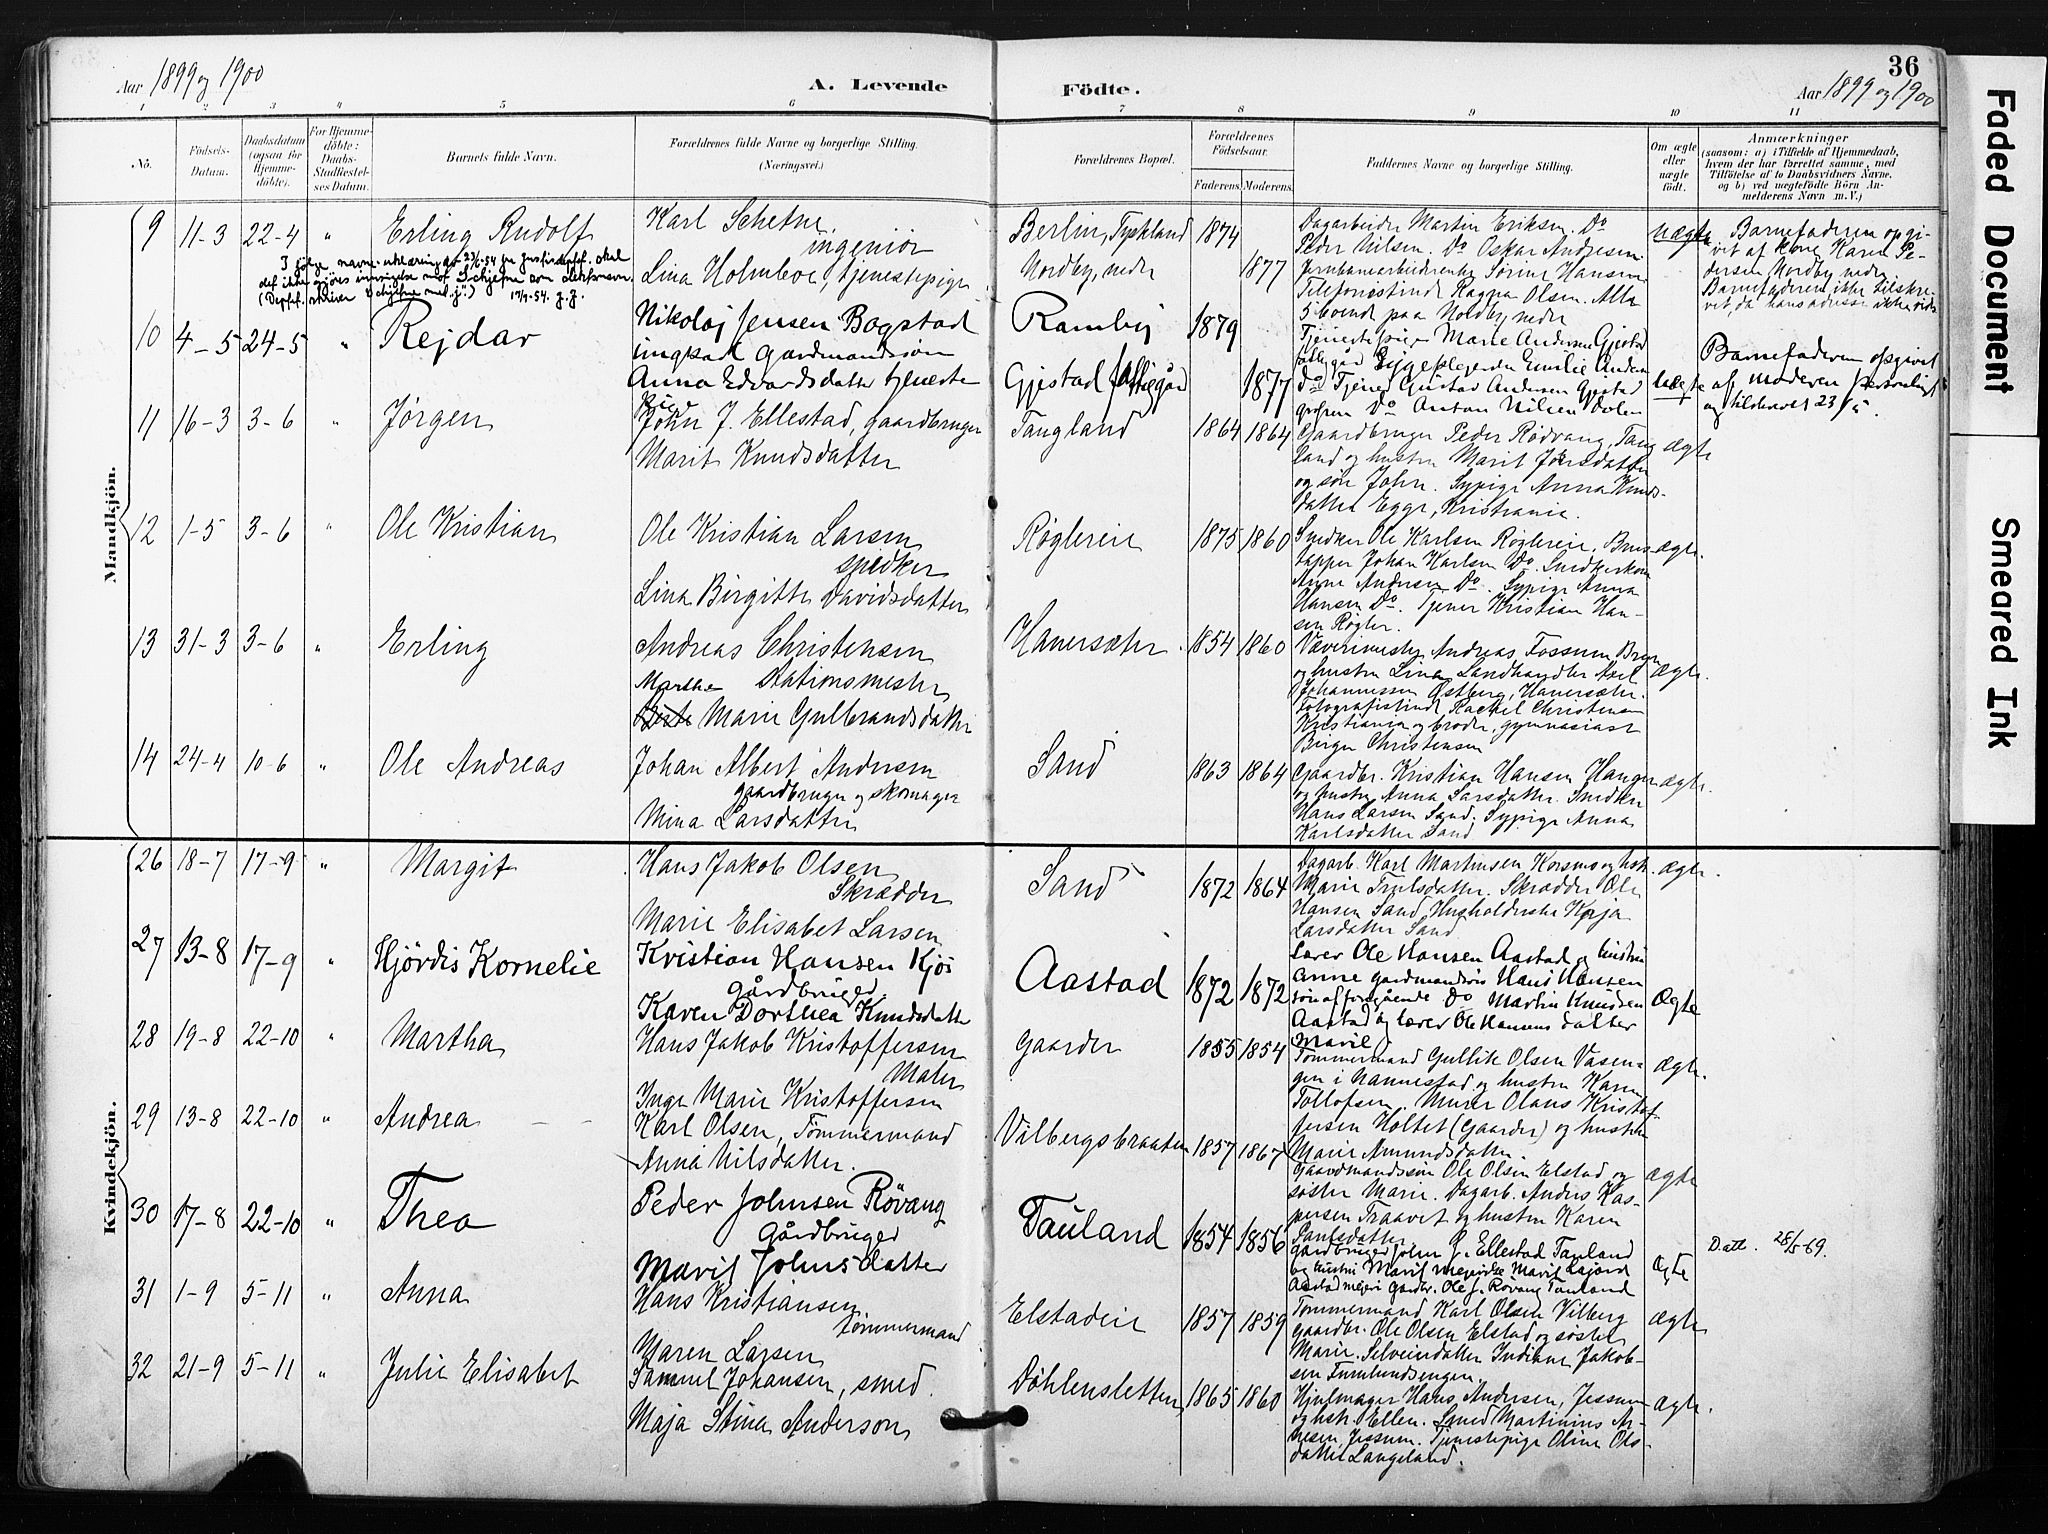 36
Aar 1899 og 1900
A. Levende
Födte.
Aar 1899 og 1900
1 2 3 4 5 6 7 8 9 10 11
No.
Födsels-Datum.
Daabsdatum (ogsaa for Hjemme-döbte).
For Hjemme-döbte: Daabs-Stadfæstel-ses Datum.
Barnets fulde Navn.
Forældrenes fulde Navne og borgerlige Stilling.
(Næringsvei.)
Forældrenes Bopæl.
Forældrenes Födselsaar.
Faderens. Moderens.
Faddernes Navne og borgerlige Stilling.
Om ægte eller uægte födt.
Anmærkninger
(saasom: a) i Tilfælde af Hjemmedaab,
hvem der har forrettet samme, med
Tilföielse af to Daabsvidners Navne,
og b) ved uægtefödte Börn An-
melderens Navn m.V.)
Mandkjön.
9 11-3 22-4 " Erling Rudolf
Karl Schetne
ingeniör
Lina Holmboe, tjenestepige
Berlin, Tyskland 1874
Nordby, nedre 1877
Dagarbeider Martin Eriksen. Do
Peder Nilsen. Do Oskar Andresen
Sörine Hansen
Ragna Olsen. Alle
boende paa Nordby, nedre
uægte
Barnefaderen opgi-
vet af Karen Pe-
dersen Nordby nedre
Barnefaderen ikke tilskre-
vet, da hans adresse ikke vides
10 4-5 24-5 " Rejdar
Nikolaj Jensen Bogstad
ungkarl Gaardmandssön
Anna Edvardsdatter tjeneste
pige
Ramby 1879
Gjestad fattiggård 1877
Marie Andersen Gjestad
fattiggård Sygeplejerden Emilie Andersen
Do Tjener Gustav Andersen Gjestad
Do Anton Nilsen Dolen
uægte
Barnefaderen opgivet
af moderen personligt
og tilskrevet 23/5.
11 16-3 3-6 " Jørgen
John J. Ellestad, gaardbruger
Marit Knudsdatter
Tangland 1864 1864
Gaardbruger Peder Rödvang, Taug
land og hustru Marit Johnsdatter
og sön John. Sypige Anna Knuds-
datter Egge, Kristiania.
ægte
12 1-5 3-6 " Ole Kristian
Ole Kristian Larsen
snedker
Lina Birgitte Davidsdatter
Røglereie 1875 1860
Snedker Ole Karlsen Røglereie. Brus-
tapper Johan Karlsen Do. Snedkerkone
Anne Andersen Do. Sypige Anna
Hansen Do. Tjener Kristian Han-
sen Røgler.
ægte.
13 31-3 3-6 " Erling
Andreas Christensen
Stationsmester
Marthe Marie Gulbrandsdatter
Hauersæter 1854 1860
Væverimester Andreas Fossum Bryn
og hustru Lina. Landhandler Axel
Johannessen Østberg, Hauersæter.
Fotografistinde Rachel Christensen
Kristiania og broder, gymnasiast
Birger Christensen
ægte.
14 24-4 10-6 " Ole Andreas
Johan Albert Andersen
gaardbruger og skomager
Mina Larsdatter
Sand 1863 1864
Gaardbr. Kristian Hansen Hanger
og hustru Anna Larsdatter. Snedker
Hans Larsen Sand. Sypige Anna
Karlsdatter Sand
ægte.
Kvindekjön.
26 18-7 17-9 " Margit
Hans Jakob Olsen
Skrædder
Marie Elisabet Larsen
Sand 1872 1864
Dagarb. Karl Martinsen Korsmo og hstr.
Marie Truelsdatter. Skrædder Ole
Hansen Sand Husholderske Kaja
Larsdatter Sand
ægte.
27 13-8 17-9 " Hjördis Kornelie
Kristian Hansen Kjos
Gårdbruger
Karen Dorthea Knudsdatter
Aastad 1872 1872
Lærer Ole Hansen Aastad og hustru
Anne gardmandssön Hans Hansen
sön af foregående Do Martin Knudsen
Aastad og lærer Ole Hansens datter
Marie
Ægte
28 19-8 22-10 " Martha
Hans Jakob Kristoffersen
Maler
Inge Marie Kristoffersen
Gaarder 1855 1854
Tömmermand Gullik Olsen Vasen-
gen i Nannestad og hustru Karen
Tollofsen. Murer Olaus Kristof-
fersen Holtet (Gaarder) og hustru
Marie Amundsdatter.
ægte.
29 13-8 22-10 " Andrea
Karl Olsen, Tömmermand
Anna Nilsdatter.
Vilbergsbraaten 1857 1867
Gaardmandssön Ole Olsen Elstad og
söster Marie. Dagarb. Anders Kas-
persen Traavet og hustru Karen
Paulsdatter.
ægte
30 17-8 22-10 " Thea
Peder Johnsen Rövang
Gårdbruger
Marit Johnsdatter
Tauland 1854 1856
Gårdbruger John J. Ellestad Tauland
og hustru Marit mejerske Marit
Aastad mejeri Garder. Ole J. Rövang Tauland
Ægte
D. att. 28/5-69.
31 1-9 5-11 " Anna
Hans Kristiansen.
tömmermand
Maren Larsen
Elstadeie 1857 1859
Tömmermand Karl Olsen Vilberg
gaardbr. Ole Olsen Elstad og söster
Marie. Indiane Jakob-
sen
ægte
32 21-9 5-11 " Julie Elisabet
Samuel Johansen, smed.
Maja Stina Anderson
Döhlensletten 1865 1860
Hjulmager Hans Andersen, Jessum
og hstr. Ellen. Smed Martinius Ar-
nesen Jessum. Tjenestepige Oline Ols-
datter Langeland.
ægte.
Faded Document
Smeared Ink